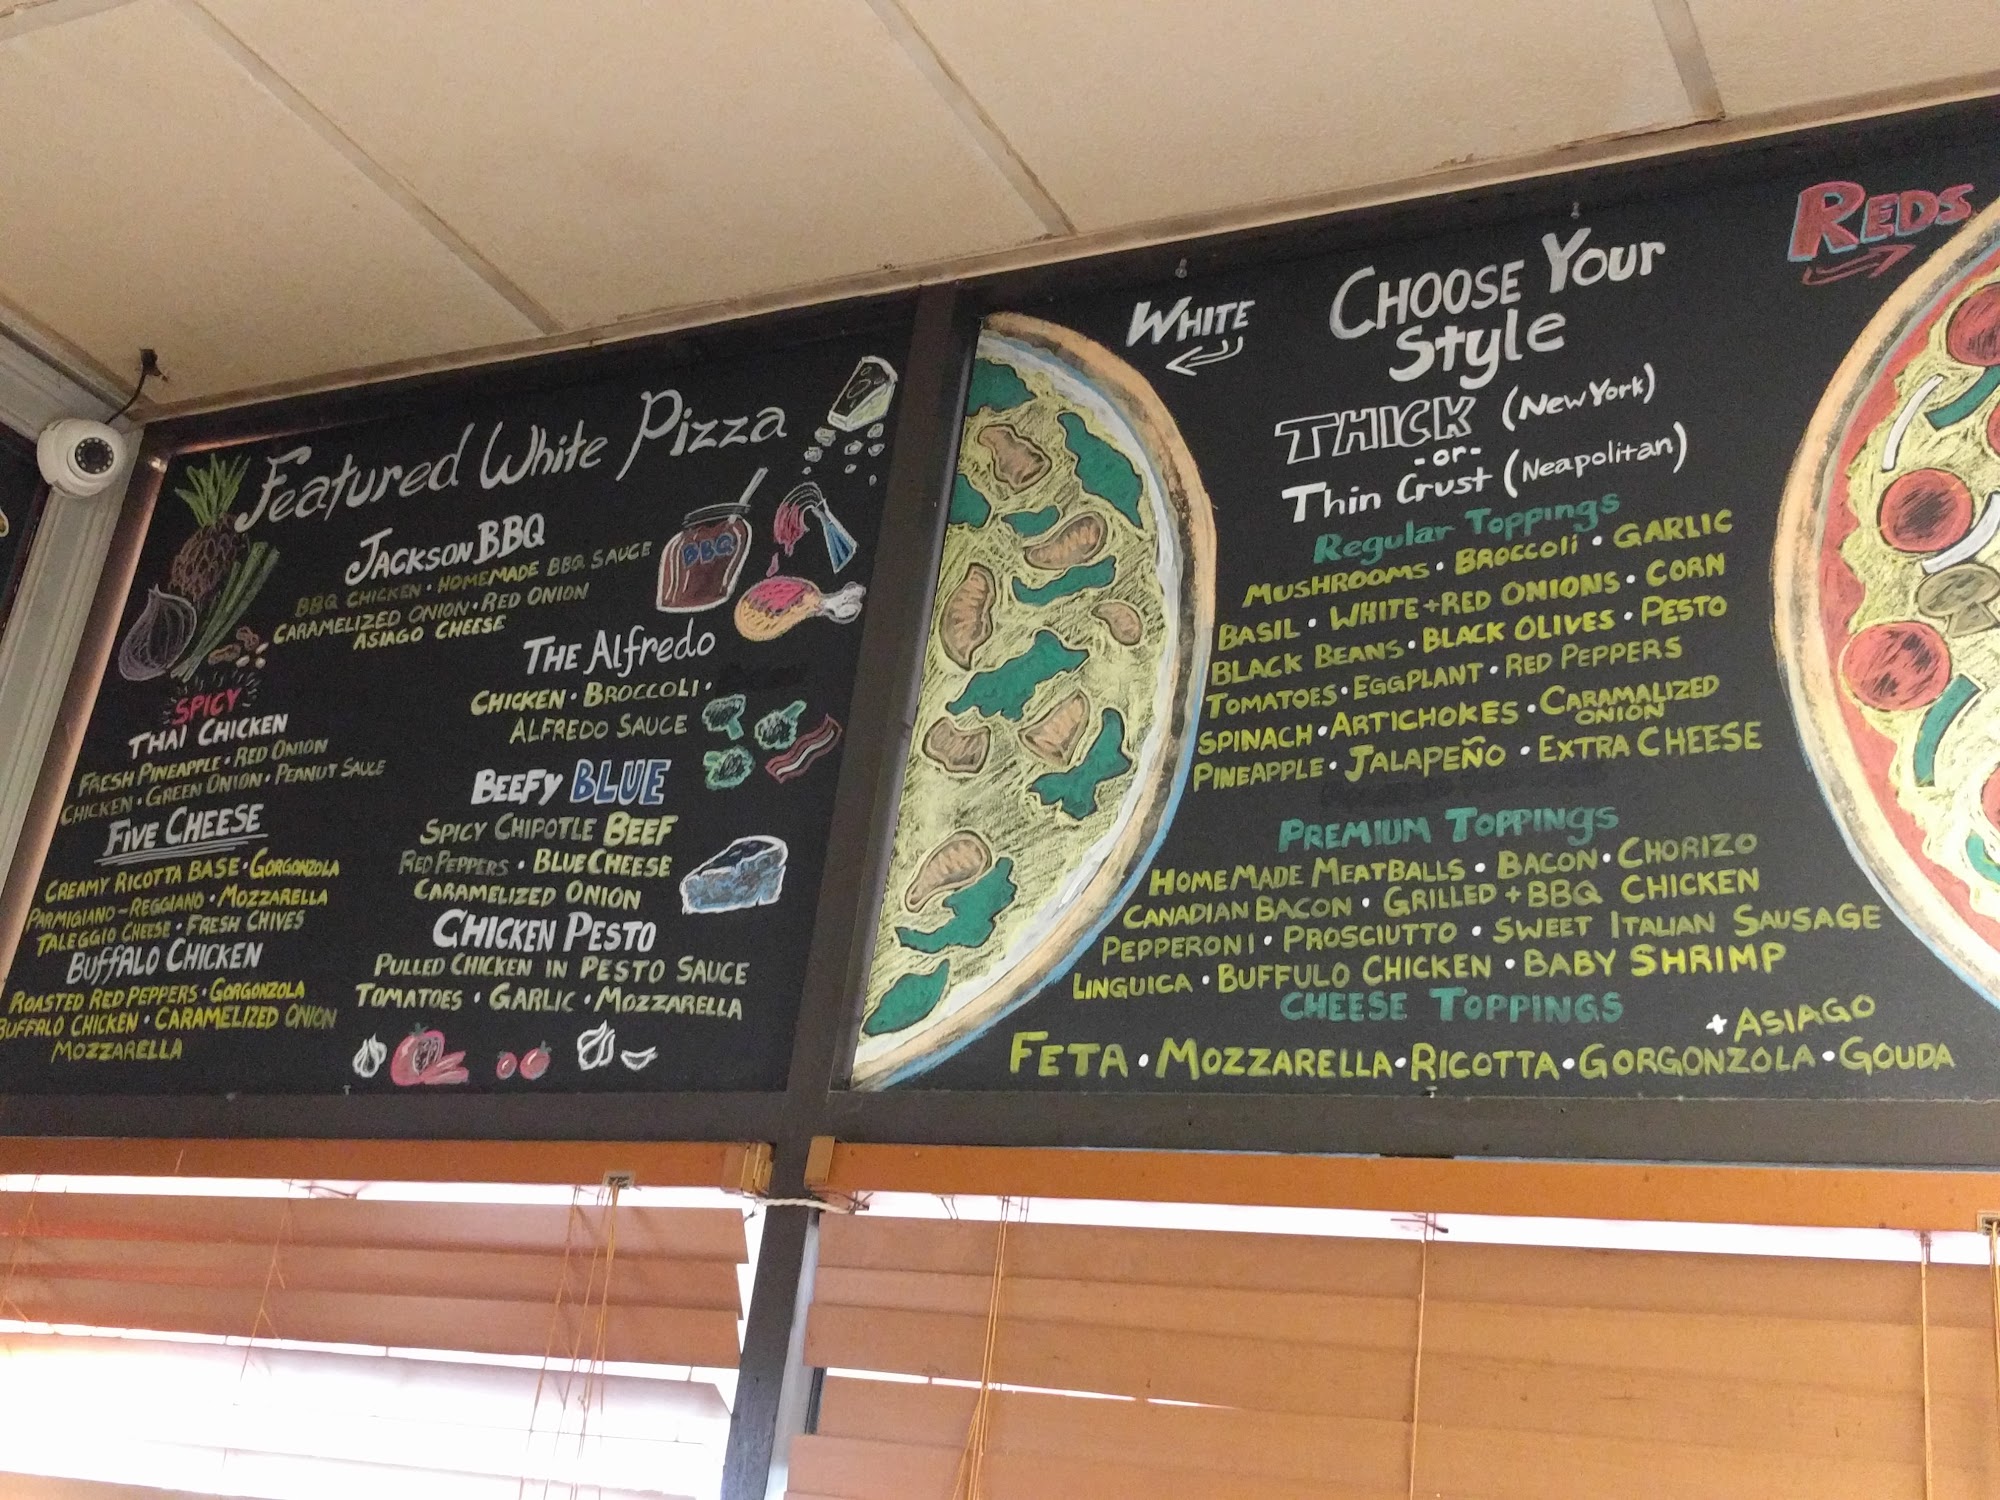 Featured White Pizza
Jackson BBQ
BBQ Chicken • Homemade BBQ Sauce
Caramelized Onion • Red Onion
Asiago Cheese
BBQ
The Alfredo
Chicken • Broccoli •
Alfredo Sauce
Spicy
Thai Chicken
Fresh Pineapple • Red Onion
Chicken • Green Onion • Peanut Sauce
Beefy Blue
Spicy Chipotle Beef
Red Peppers • Blue Cheese
Caramelized Onion
Five Cheese
Creamy Ricotta Base • Gorgonzola
Parmigiano-Reggiano • Mozzarella
Taleggio Cheese • Fresh Chives
Chicken Pesto
Pulled Chicken in Pesto Sauce
Tomatoes • Garlic • Mozzarella
Buffalo Chicken
Roasted Red Peppers • Gorgonzola
Buffalo Chicken • Caramelized Onion
Mozzarella
White
Choose Your
Style
Reds
THICK (New York)
-or-
Thin Crust (Neapolitan)
Regular Toppings
Mushrooms • Broccoli • Garlic
Basil • White + Red Onions • Corn
Black Beans • Black Olives • Pesto
Tomatoes • Eggplant • Red Peppers
Spinach • Artichokes • Caramalized
Onion
Pineapple • Jalapeño • Extra Cheese
Premium Toppings
HomeMade Meatballs • Bacon • Chorizo
Canadian Bacon • Grilled + BBQ Chicken
Pepperoni • Prosciutto • Sweet Italian Sausage
Linguica • Buffulo Chicken • Baby Shrimp
Cheese Toppings
+ Asiago
Feta • Mozzarella • Ricotta • Gorgonzola • Gouda